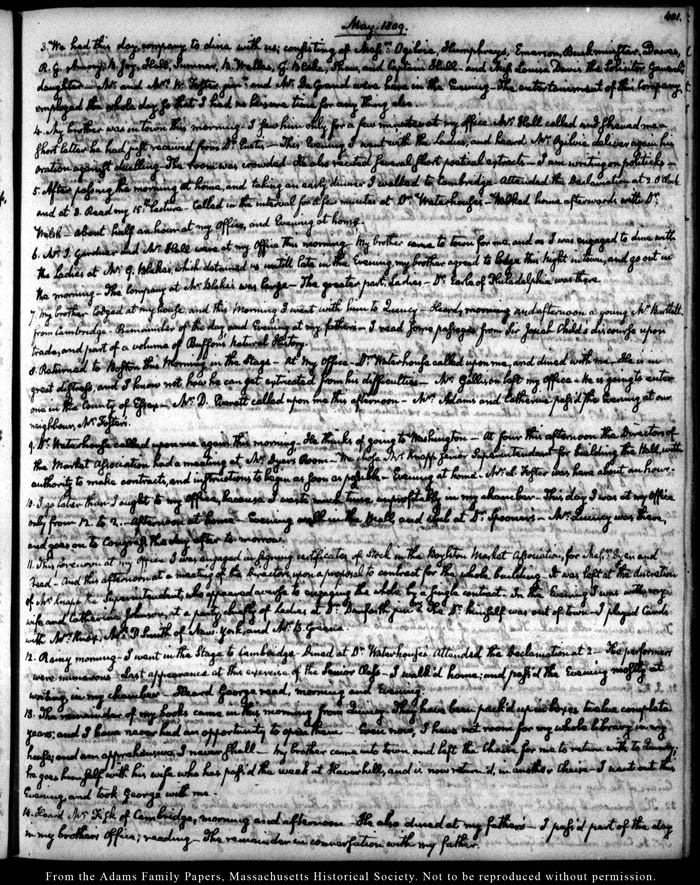 401.
May. 1809.
3. We had this day company to dine with us; consisting of Mess.rs Ogilvie, Humphreys, Emerson, Buckminster, Davis,
R. G. Amory, B. Joy, Hall, Sumner, B. Welles, G. Blake, Shaw, and Captain Hall and Miss Louisa Davis the Solicitor General's
daughter. Mr. and Mrs. W. Foster jun.r and Mr. De Grand were here in the Evening. The entertainment of this company,
employed the whole day, so that I had no leisure time for any thing else.
4. My brother was in town this morning. I saw him only for a few minutes at my office. Mr. Hall called and shewed me a
short letter he had just received from Dr. Eustis. This Evening I went with the Ladies, and heard Mr. Ogilvie deliver again his
oration against duelling. The room was crowded. He also recited several short poetical extracts. I am writing on politicks.
5. After passing the morning at home, and taking an early dinner I walked to Cambridge. Attended the Declamation at 2. O'clock
and at 3. Read my 15.th Lecture. Called in the interval for a few minutes at Dr. Waterhouse's. Walked home afterwards with Dr.
Welsh. about half an hour at my Office, and Evening at home.
6. Mr. J. Gardner and Mr. Hall were at my Office this morning. My brother came to town for me, and as I was engaged to dine with
the Ladies at Mr. G. Blake's, which detained us untill late in the Evening, my brother agreed to lodge this Night in town, and go out in
the morning. The company at Mr. Blake's was large. The greater part, Ladies. Dr. Earle of Philadelphia was there.
7. My brother lodged at my house, and this Morning I went with him to Quincy. Heard, morning and afternoon a young Mr. Bartlett,
from Cambridge. Remainder of the day and Evening at my father's. I read some passages from Sir Josiah Child's discourse upon
trade, and part of a volume of Buffon's Natural History.
8. Returned to Boston this Morning in the Stage. At my Office. Dr. Waterhouse called upon me, and dined with me. He is in
great distress, and I know not how he can get extricated from his difficulties. Mr. Gallison left my Office. He is going to enter
one in the County of Essex. Mr. D. Everett called upon me this afternoon. Mrs. Adams and Catherine, pass'd the Evening at our
neighbour, Mr. Foster.
9. Dr. Waterhouse called upon me again this morning. He thinks of going to Washington. At four this afternoon the Directors of
the Market Association had a meeting at Mr. Dyer's Room. We chose Mr. Knapp senior Superintendent for building the Hall, with
authority to make contracts, and instructions to begin as soon as possible. Evening at home. Mr. L. Foster was here about an hour.
10. I go later than I ought to my Office, because I waste much time, unprofitably in my chamber. This day I was at my Office
only from 12. to 2. Afternoon at home. Evening walk in the Mall, and Club at Dr. Spooner's. Mr. Quincy was there,
and goes on to Congress the day after to-morrow.
11. This forenoon at my office I was engaged in signing certificates of Stock in the Boylston Market Association, for Mess.rs Dyer and
Head. And this afternoon at a meeting of the Directors, upon a proposal to contract for the whole building. It was left at the discretion
of Mr. Knapp the Superintendent, who appeared averse to engaging the whole by a single contract. In the Evening I was with my
wife and Catherine Johnson, at a party chiefly of Ladies at Dr. Danforth jun.r's. The Dr. himself was out of town. I played Cards
with Mrs. Knox, Mrs. D. Smith of New-York, and Mr. B. Greene.
12. Rainy morning. I went in the Stage to Cambridge. Dined at Dr. Waterhouse's. Attended the Declamation at 2. The performers
were numerous. Last appearance at this exercise of the Senior Class. I walk'd home; and pass'd the Evening mostly at
writing, in my chamber. Heard George read, morning and evening.
13. The remainder of my books came in this morning from Quincy. They have been pack'd up in boxes twelve complete
years, and I have never had an opportunity to open them. Even now, I have not room for my whole library in my
house, and am apprehensive I never shall. My brother came into town, and left the Chaise for me to return with to Quincy;
he goes himself with his wife who has pass'd the week at Haverhill, and is now return'd, in another Chaise. I went out this
Evening, and took George with me.
14. Heard Mr. Fisk of Cambridge, morning and afternoon. He also dined at my father's. I pass'd part of the day
in my brother's Office; reading. The remainder in conversation with my father.
From the Adams Family Papers, Massachusetts Historical Society. Not to be reproduced without permission.